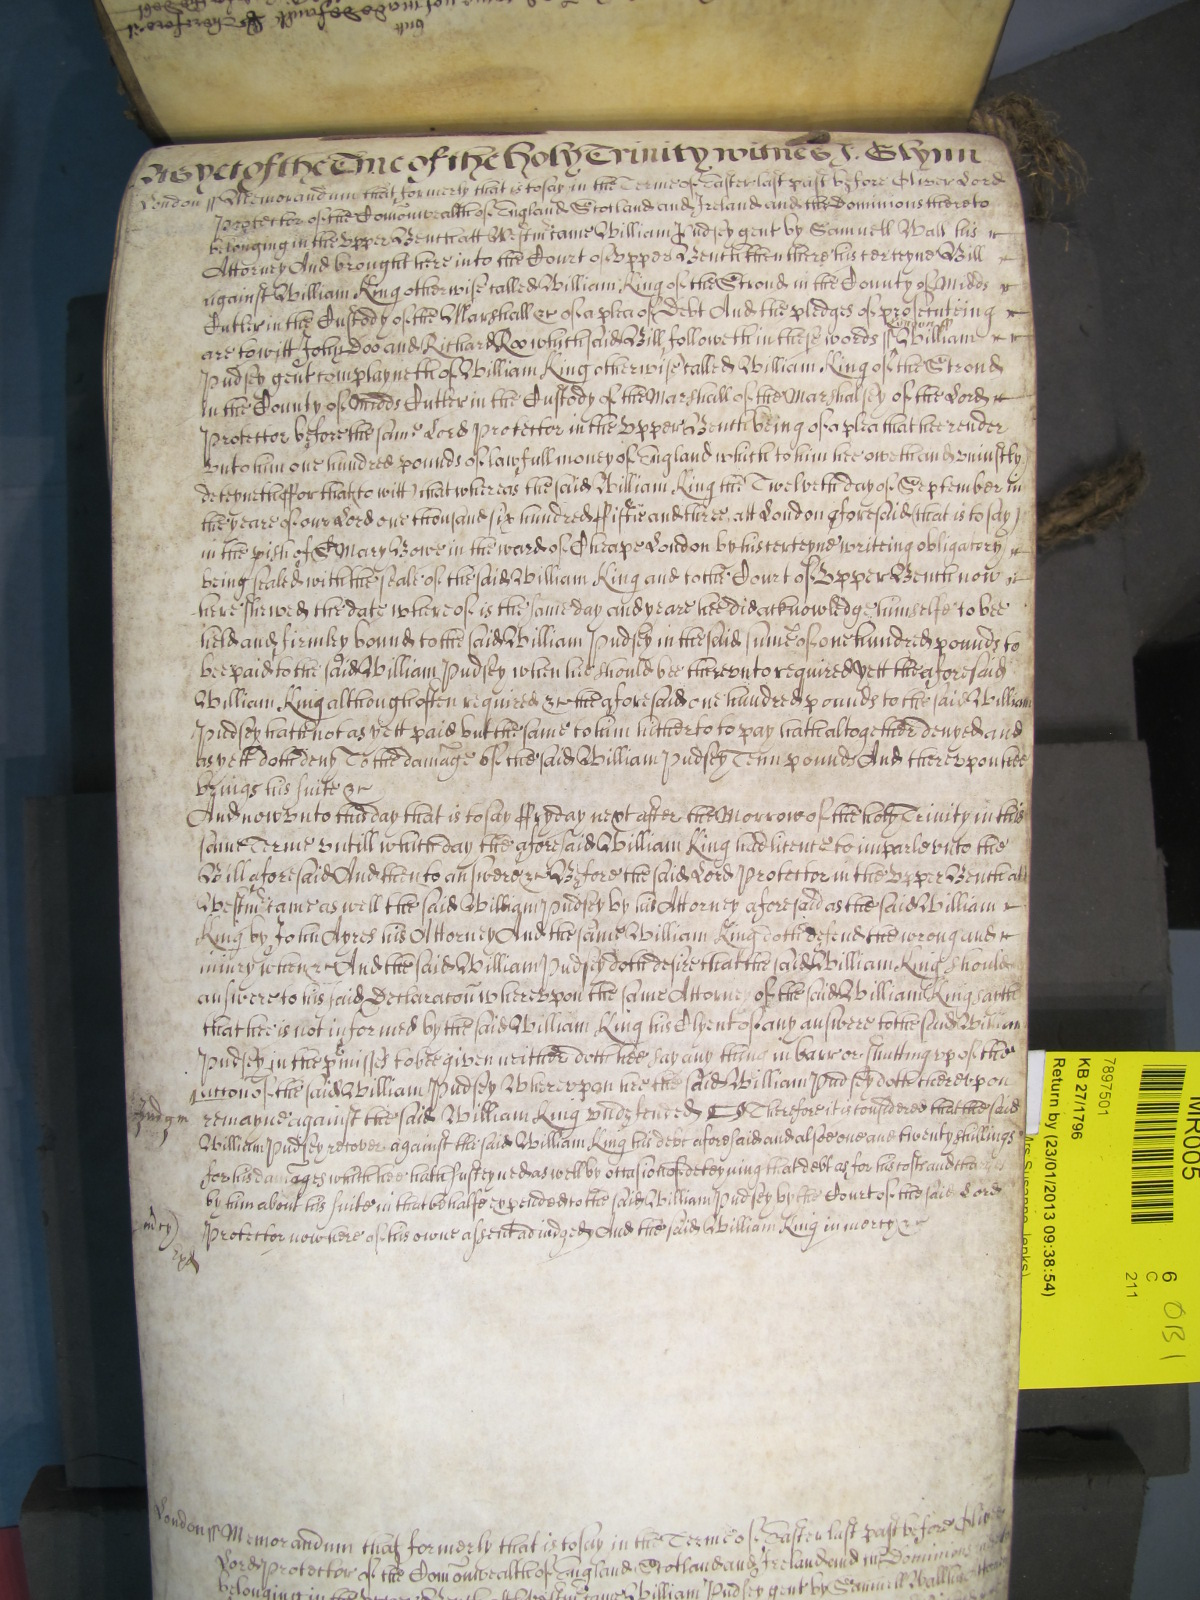 As yet of the Tme of the holy Trinity witnes J. Glynn
London ss Memorandum that formerly that is to say in the Terme of Easter last past before Oliver Lord
Protector of the Comonwealth of England Scotland and Ireland and the Dominions thereto
belonging in the Upper Bench att Westm came William Pudsey gent by Samuell Wall his
Attorney And brought here into the Court of Upper Bench then there his certeyne Bill
against William King otherwise called William King of the Strond in the County of Midds
Cutler in the Custody of the Marshall &c of a plea of Debt And the pledges of prosecuteing
are to witt John Doo and Richard Roo which said Bill followeth in these words ss London ss William
Pudsey gent complayneth of William King otherwise called William King of the Strond
in the County of Midds Cutler in the Custody of the Marshall of the Marshalsey of the Lord
Protector before the same Lord Protector in the Upper Bench being of a plea that hee render
unto him one hundred pounds of lawfull money of England which to him hee oweth and uniustly
deteyneth ffor that to witt that whereas the said William King the Twelveth day of September in
the yeare of our Lord one thousand six hundred ffiftie and three att London aforesaid that is to say
in the pish of St Mary Bowe in the ward of Cheape London by his certeyne writeing obligatory
being sealed with the seale of the said William King and to the Court of Upper Bench now
here shewed the date whereof is the same day and yeare hee did acknowledge himselfe to bee
held and firmley bound to the said William Pudsey in the said sume of one hundred pounds to
bee paid to the said William Pudsey when hee should bee thereunto required yett the aforesaid
William King although often required &c the aforesaid one hundred pounds to the said William
Pudsey hath not as yett paid but the same to him hitherto to pay hath altogether denyed and
as yett doth deny To the damage of the said William Pudsey Tenn pounds And thereupon hee
brings his suite &c
And now unto this day that is to say ffryday next after the Morrow of the holy Trinity in this
same Terme untill which day the aforesaid William King had licence to imparle unto the
Bill aforesaid And then to answere &c Before the said Lord Protector in the Upper Bench att
Westm came as well the said William Pudsey by his Attorney aforesaid as the said William
King by John Ayres his Attorney And the same William King doth defend the wrong and
iniury when &c And the said William Pudsey doth desire that the said William King should
answere to his said Declaracon whereupon the same Attorney of the said William King saith
that hee is not informed by the said William King his Clyent of any answere to the said William
Pudsey in the pmisses to bee given neither doth hee say any thing in barr or shutting up of the
accon of the said William Pudsey Whereupon hee the said William Pudsey doth thereupon
Judgm remayne against the said William King undefenced &c Therefore it is considered that the said
William Pudsey recover against the said William King his debt aforesaid and alsoe one and twenty shillings
for his damages which hee hath susteyned as well by occasion of deteyning that debt as for his costs and charges
by him about his suite in that behalfe expended to the said William Pudsey by the Court of the said Lord
mcy Protector now here of his owne assent adiudged And the said William King in mercy &c
London ss Memorandum that formerly that is to say in the Terme of Easter last past before Oliver
Lord Protector of the Comonwealth of England Scotland and Ireland and the Dominions
belonging in the Upper Bench att Westm came William Pudsey gent by Samuell Wall
MR005
7897501
KB 27/1796
Return by (23/01/2013 09:38:54)
6
C
211
OB1